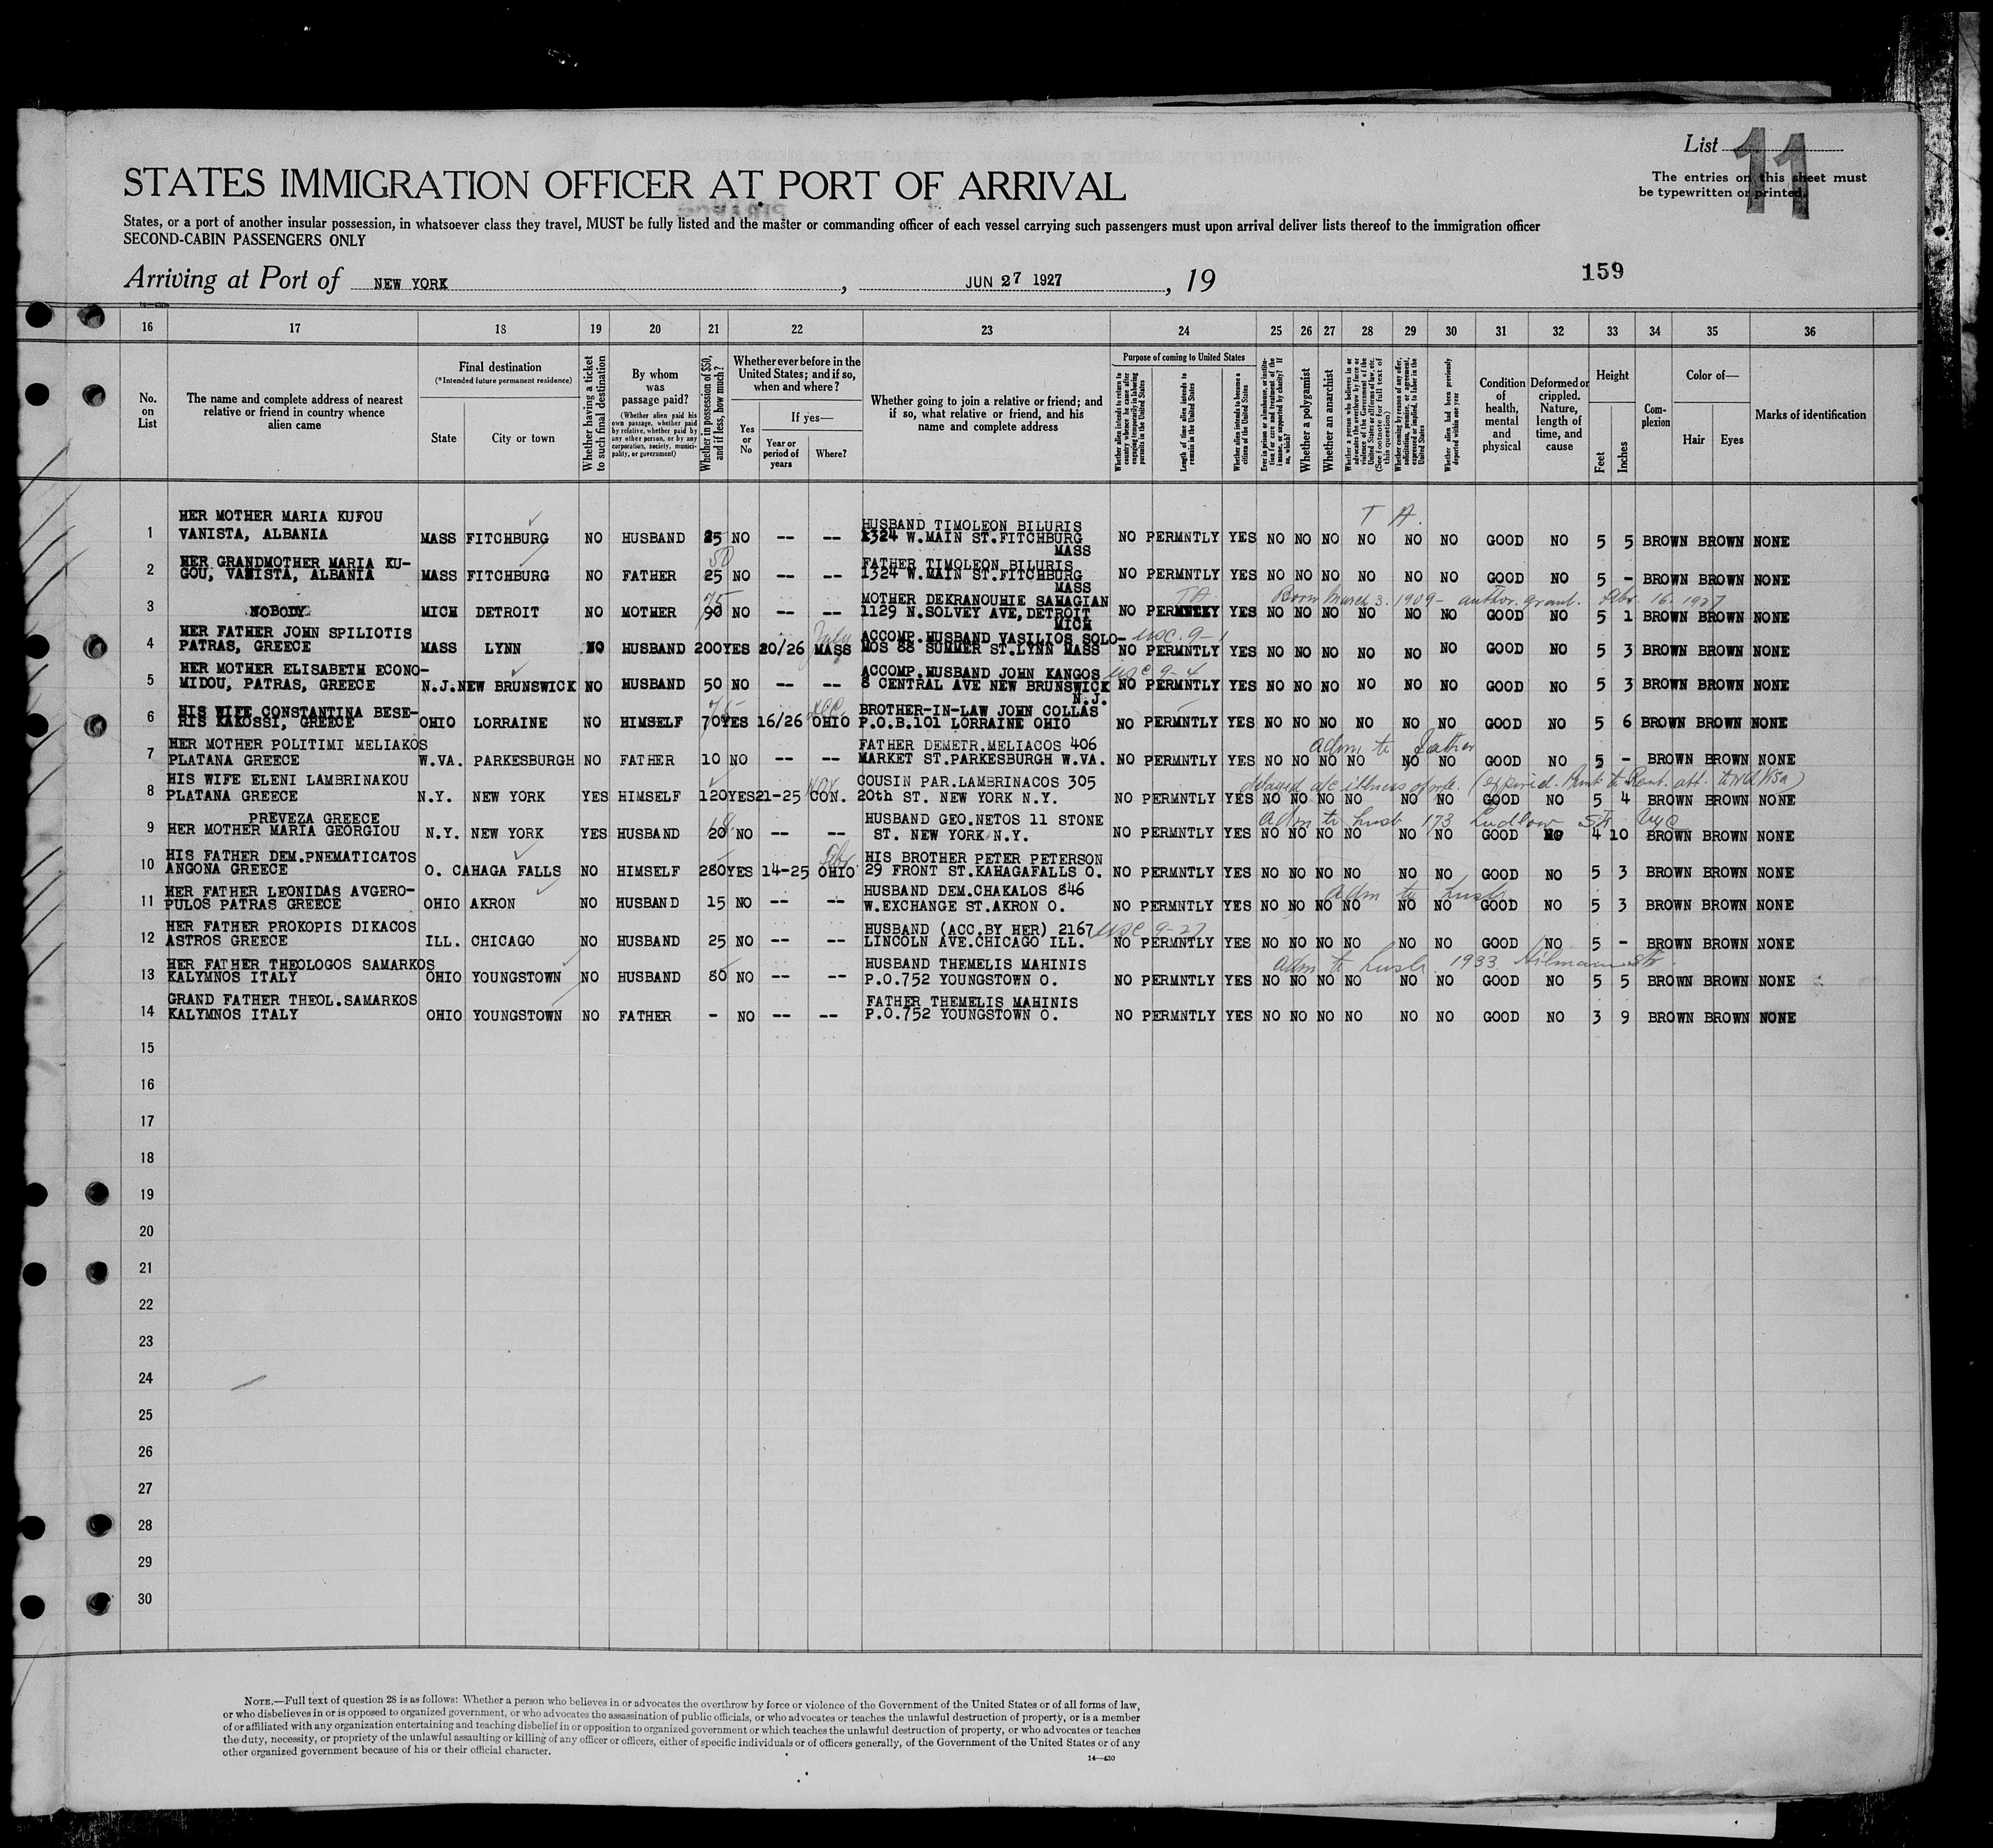 List 11
The entries on this sheet must
be typewritten or printed.
STATES IMMIGRATION OFFICER AT PORT OF ARRIVAL
States, or a port of another insular possession, in whatsoever class they travel, MUST be fully listed and the master or commanding officer of each vessel carrying such passengers must upon arrival deliver lists thereof to the immigration officer
SECOND-CABIN PASSENGERS ONLY
Arriving at Port of NEW YORK, JUN 27 1927, 19
159
16 17 18 19 20 21 22 23 24 25 26 27 28 29 30 31 32 33 34 35 36
No. on List
The name and complete address of nearest relative or friend in country whence alien came
Final destination
(*Intended future permanent residence)
State
City or town
Whether having a ticket to such final destination
By whom was passage paid?
(Whether alien paid his own passage, whether paid by relative, whether paid by any other person, or by any corporation, society, municipality, or government)
Whether in possession of $50, and if less, how much?
Whether ever before in the United States; and if so, when and where?
Yes or No
If yes—
Year or period of years
Where?
Whether going to join a relative or friend; and if so, what relative or friend, and his name and complete address
Purpose of coming to United States
Whether alien intends to return to country whence he came after engaging temporarily in laboring pursuits in the United States
Length of time alien intends to remain in the United States
Whether alien intends to become a citizen of the United States
Whether a polygamist
Whether an anarchist
(See footnote for full text of this question)
Whether alien had been previously deported within one year
Condition of health, mental and physical
Deformed or crippled. Nature, length of time, and cause
Height
Feet
Inches
Complexion
Color of—
Hair
Eyes
Marks of identification
T A.
HER MOTHER MARIA KUFOU HUSBAND TIMOLEON BILURIS
1 VANISTA, ALBANIA MASS FITCHBURG NO HUSBAND 25 NO -- -- 1324 W.MAIN ST.FITCHBURG MASS NO PERMNTLY YES NO NO NO NO NO NO GOOD NO 5 5 BROWN BROWN NONE
50
HER GRANDMOTHER MARIA KU- FATHER TIMOLEON BILURIS
2 GOU, VANISTA, ALBANIA MASS FITCHBURG NO FATHER 25 NO -- -- 1324 W.MAIN ST.FITCHBURG MASS NO PERMNTLY YES NO NO NO NO NO NO GOOD NO 5 - BROWN BROWN NONE
75 MOTHER DEKRANOUHIE SAHAGIAN TA Born March 3. 1909- author. grant. Febr. 16. 1927
3 NOBODY MICH DETROIT NO MOTHER 90 NO -- -- 1129 N.SOLVEY AVE,DETROIT MICH NO PERMNTLY YES NO NO NO NO NO NO GOOD NO 5 1 BROWN BROWN NONE
HER FATHER JOHN SPILIOTIS July ACCOMP.HUSBAND VASILIOS SOLO- USC. 9-1
4 PATRAS, GREECE MASS LYNN NO HUSBAND 200 YES 20/26 MASS MOS 88 SUMMER ST.LYNN MASS NO PERMNTLY YES NO NO NO NO NO NO GOOD NO 5 3 BROWN BROWN NONE
HER MOTHER ELISABETH ECONO- ACCOMP.HUSBAND JOHN KANGOS USC 9-4
5 MIDOU, PATRAS, GREECE N.J. NEW BRUNSWICK NO HUSBAND 50 NO -- -- 8 CENTRAL AVE NEW BRUNSWICK N.J. NO PERMNTLY YES NO NO NO NO NO NO GOOD NO 5 3 BROWN BROWN NONE
HIS WIFE CONSTANTINA BESE- 75 Dec. BROTHER-IN-LAW JOHN COLLAS
6 RIS KAKOSSI, GREECE OHIO LORRAINE NO HIMSELF 70 YES 16/26 OHIO P.O.B.101 LORRAINE OHIO NO PERMNTLY YES NO NO NO NO NO NO GOOD NO 5 6 BROWN BROWN NONE
HER MOTHER POLITIMI MELIAKOS FATHER DEMETR.MELIACOS 406 adm to father
7 PLATANA GREECE W.VA. PARKESBURGH NO FATHER 10 NO -- -- MARKET ST.PARKESBURGH W.VA. NO PERMNTLY YES NO NO NO NO NO NO GOOD NO 5 - BROWN BROWN NONE
HIS WIFE ELENI LAMBRINAKOU Nov COUSIN PAR.LAMBRINACOS 305 delayed a/c illness of
8 PLATANA GREECE N.Y. NEW YORK YES HIMSELF 120 YES 21-25 CON. 20th ST. NEW YORK N.Y. NO PERMNTLY YES NO NO NO NO NO NO GOOD NO 5 4 BROWN BROWN NONE
PREVEZA GREECE HUSBAND GEO.NETOS 11 STONE adm to husb 173 Ludlow St. NYC
9 HER MOTHER MARIA GEORGIOU N.Y. NEW YORK YES HUSBAND 20 NO -- -- ST. NEW YORK N.Y. NO PERMNTLY YES NO NO NO NO NO NO GOOD NO 4 10 BROWN BROWN NONE
HIS FATHER DEM.PNEMATICATOS Febr. HIS BROTHER PETER PETERSON
10 ANGONA GREECE O. CAHAGA FALLS NO HIMSELF 280 YES 14-25 OHIO 29 FRONT ST.KAHAGAFALLS O. NO PERMNTLY YES NO NO NO NO NO NO GOOD NO 5 3 BROWN BROWN NONE
HER FATHER LEONIDAS AVGERO- HUSBAND DEM.CHAKALOS 846 adm to husb
11 PULOS PATRAS GREECE OHIO AKRON NO HUSBAND 15 NO -- -- W.EXCHANGE ST.AKRON O. NO PERMNTLY YES NO NO NO NO NO NO GOOD NO 5 3 BROWN BROWN NONE
HER FATHER PROKOPIS DIKACOS HUSBAND (ACC.BY HER) 2167 USC 9-27
12 ASTROS GREECE ILL. CHICAGO NO HUSBAND 25 NO -- -- LINCOLN AVE.CHICAGO ILL. NO PERMNTLY YES NO NO NO NO NO NO GOOD NO 5 - BROWN BROWN NONE
HER FATHER THEOLOGOS SAMARKOS HUSBAND THEMELIS MAHINIS adm to husb. 1933 Hilman Str.
13 KALYMNOS ITALY OHIO YOUNGSTOWN NO HUSBAND 80 NO -- -- P.O.752 YOUNGSTOWN O. NO PERMNTLY YES NO NO NO NO NO NO GOOD NO 5 5 BROWN BROWN NONE
GRAND FATHER THEOL.SAMARKOS FATHER THEMELIS MAHINIS
14 KALYMNOS ITALY OHIO YOUNGSTOWN NO FATHER - NO -- -- P.O.752 YOUNGSTOWN O. NO PERMNTLY YES NO NO NO NO NO NO GOOD NO 3 9 BROWN BROWN NONE
15
16
17
18
19
20
21
22
23
24
25
26
27
28
29
30
NOTE.—Full text of question 28 is as follows: Whether a person who believes in or advocates the overthrow by force or violence of the Government of the United States or of all forms of law,
or who disbelieves in or is opposed to organized government, or who advocates the assassination of public officials, or who advocates or teaches the unlawful destruction of property, or is a member
of or affiliated with any organization entertaining and teaching disbelief in or opposition to organized government or which teaches the unlawful destruction of property, or who advocates or teaches
the duty, necessity, or propriety of the unlawful assaulting or killing of any officer or officers, either of specific individuals or of officers generally, of the Government of the United States or of any
other organized government because of his or their official character.
14—430